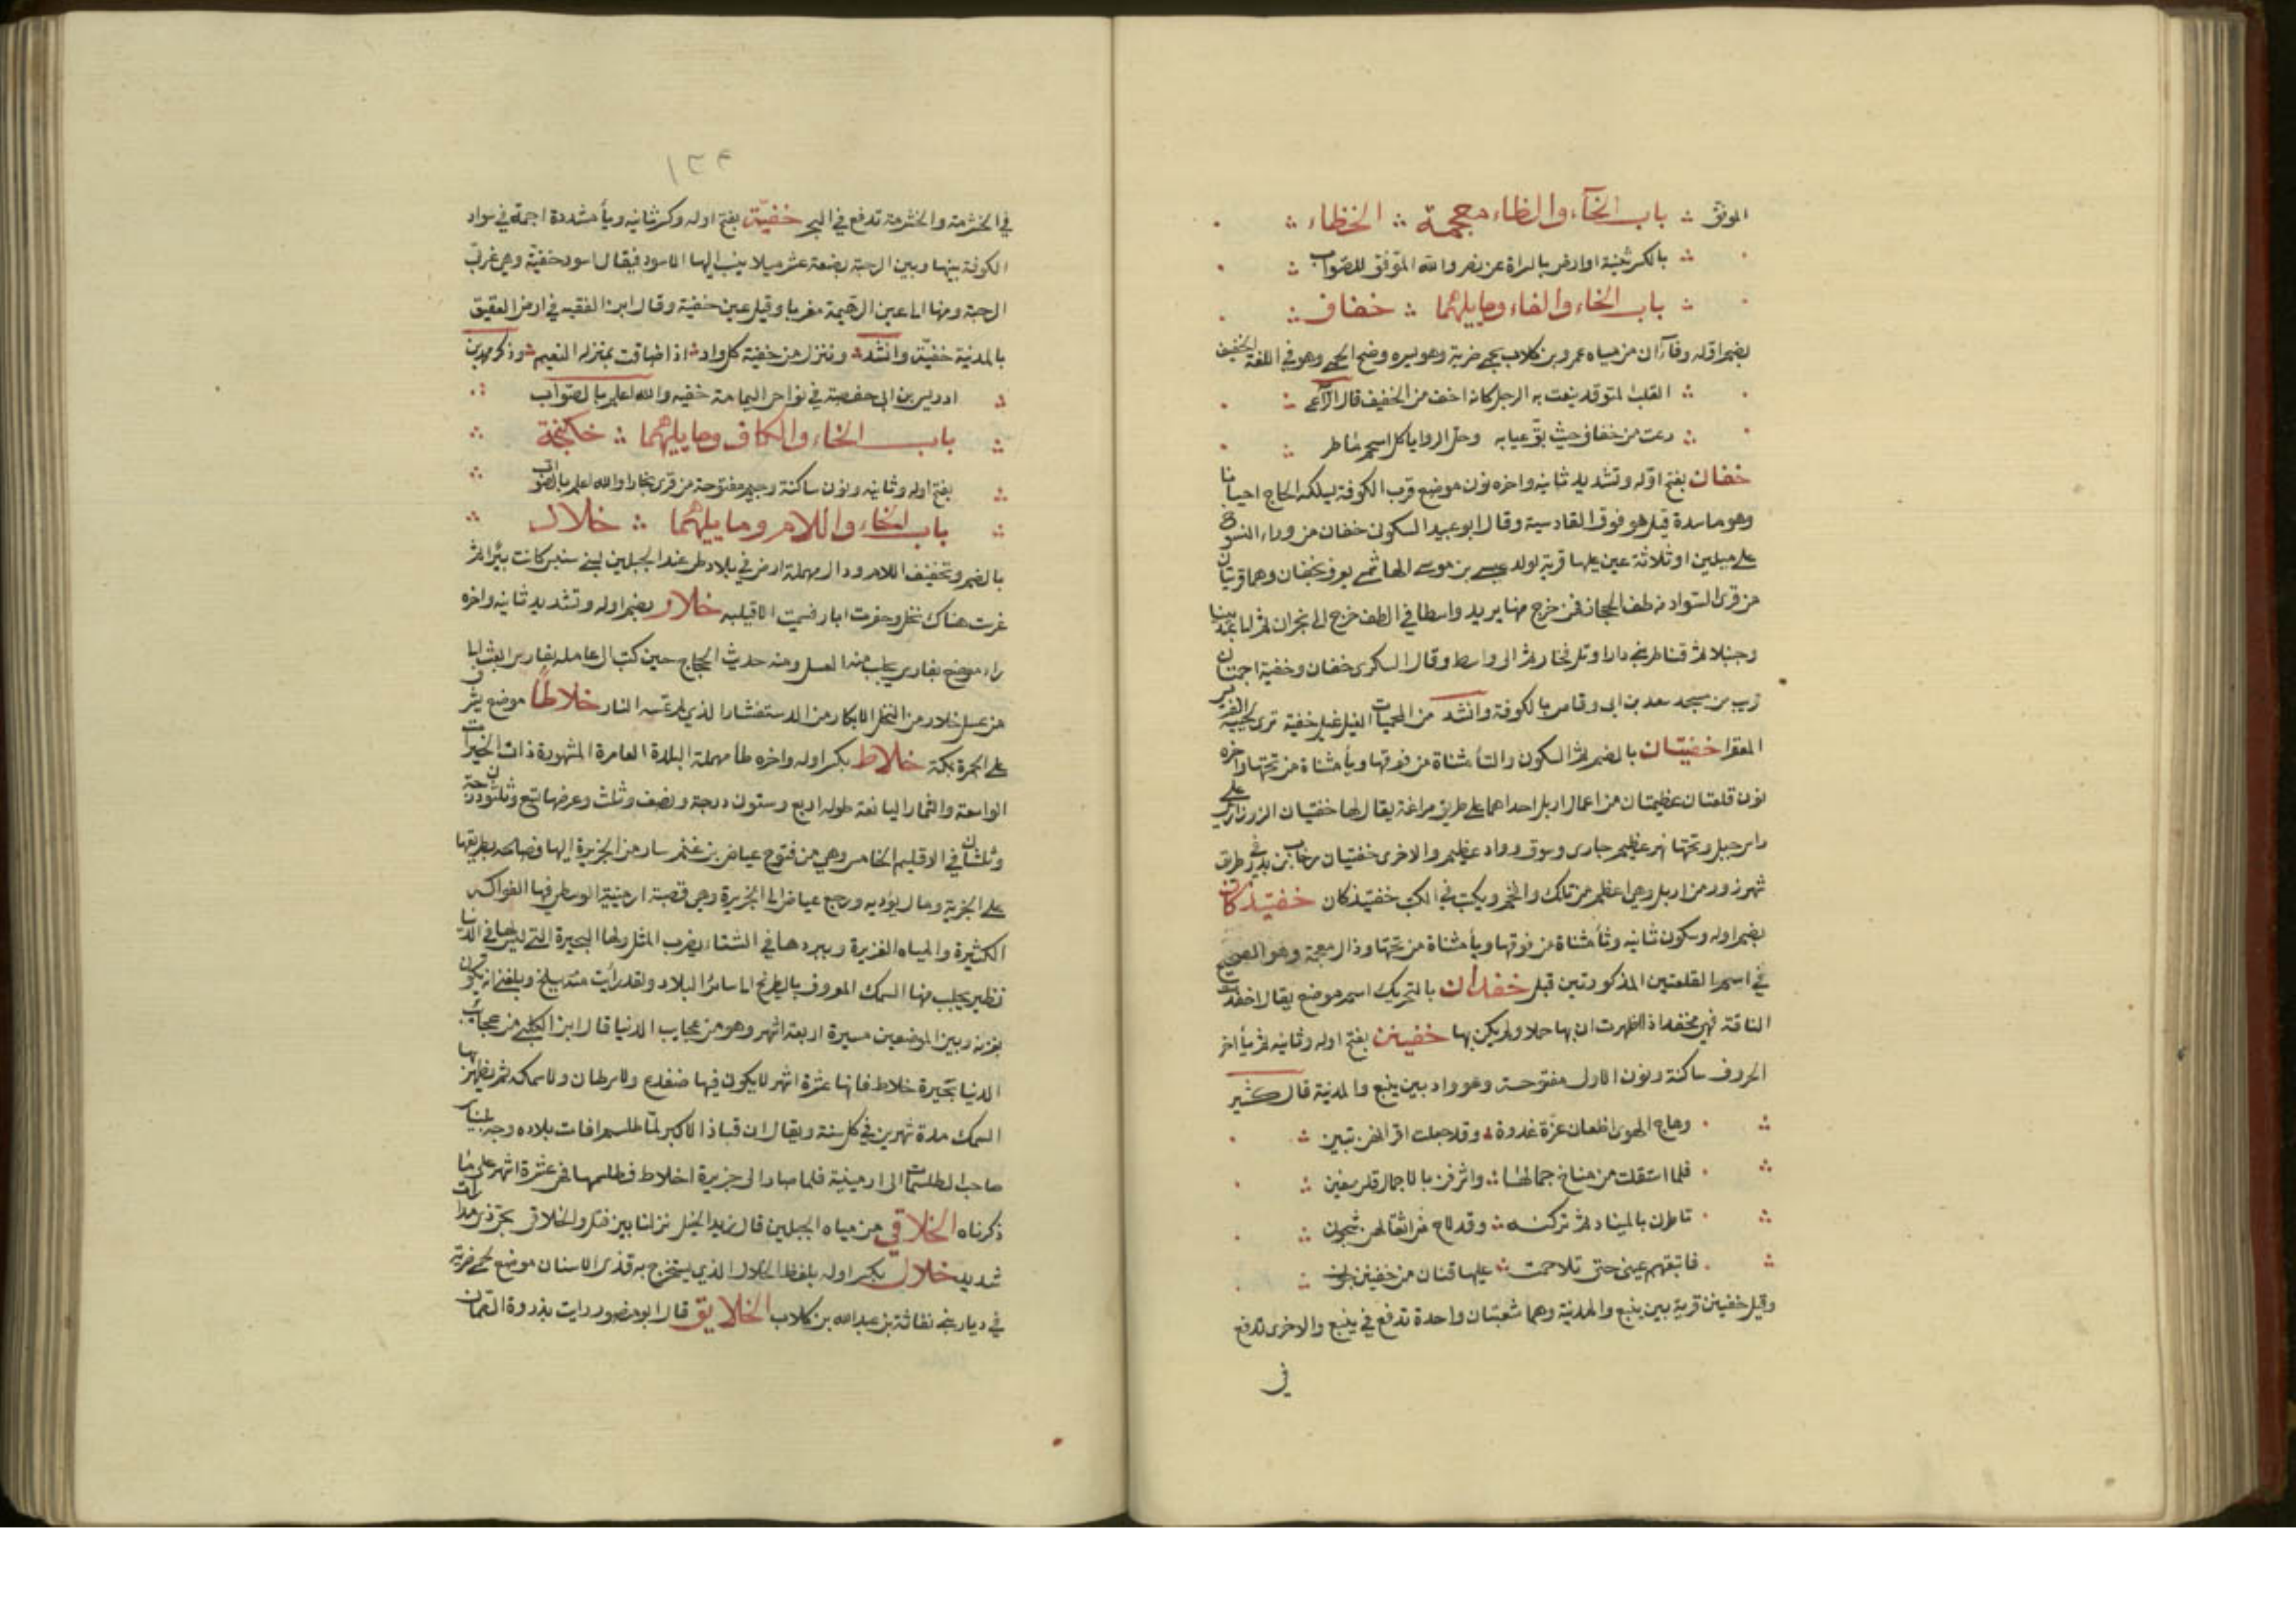 الموفق ∴ باب الخآء والظاء معجمة ∴ الخظاء ∴
∴ بالكسر ثنية اوارض بالسراة عن نصر والله الموفق للصواب ∴
∴ باب الخاء والفاء وما يليهما ∴ خفاف ∴
بضم اوله وفاآن من مياه عمرو بن كلاب بحمى ضرية وهو يسره وضح الحمى وهو في اللغة الخفيف
∴ القلب المتوقد ينعت به الرجل كانه اخف من الخفيف قال الراعي ∴
∴ رعت من خفاف حيث بق عيابه وحل الروايا كل اسحم ماطر ∴
خفان بفتح اوله وتشديد ثانيه واخره نون موضع قرب الكوفة يسلكه الحاج احيانا
وهو ماسدة قيل هو فوق القادسية وقال ابو عبيد السكوني خفان من وراء النسوخ
على ميلين او ثلاثة عين عليها قرية لولد عيسى بن موسى الهاشمي يعرف بخفان وهما قريتان
من قرى السواد من طف الحجاز فمن خرج منها يريد واسطا في الطف خرج الى نجران ثم الى عبدسيا
وجنبلا ثم قناطر بني دارا وتل فخار ثم الى واسط وقال السكري خفان وخفية اجمتان
قريب من مسجد سعد بن ابى وقاص بالكوفة وانشد من المحميات الغيل غيل خفية ترى تحت لحييه الفريس
المعفرا خفتيان بالضم ثم السكون والتا مثناة من فوقها ويا مثناة من تحتها واخره
نون قلعتان عظيمتان من اعمال اربل احداهما على طريق مراغة يقال لها خفتيان الزرزاري على
راس جبل وتحتها نهر عظيم جاري وسوق وواد عظيم والاخرى خفتيان سرخاب بن بدر في طريق
شهرزور من اربل وهى اعظم من تلك وافخم ويكتب في الكتب خفتيذكان خفتيذكان
بضم اوله وسكون ثانيه وتا مثناة من فوقها ويا مثناة من تحتها وذال معجمة وهو الصحيح
في اسم القلعتين المذكورتين قبل خفدان بالتحريك اسم موضع يقال اخفدت
الناقة فهى مخفد اذا اظهرت ان بها حملا ولم يكن بها خفينن بفتح اوله وثانيه ثم يا اخر
الحروف ساكنة ونون الاولى مفتوحة وهو واد بين ينبع والمدينة قال كثير
∴ وهاج الهوى اظعان عزة غدوة ∴ وقد جعلت اقرانهن تبين ∴
∴ فلما استقلت من مناخ جمالها ∴ واشرفن بالاجمال قلت سفين ∴
∴ تاطرن بالميناء ثم تركنه ∴ وقد لاح من اثقالهن شجون ∴
∴ فاتبعتهم عينى حتى تلاحمت ∴ عليها قنان من خفينن جون ∴
وقيل خفينن قرية بين ينبع والمدينة وهما شعبتان واحدة تدفع في ينبع والاخرى تدفع
في
١٣٤
في الخشرمة والخشرمة تدفع في البحر خفيّة بفتح اوله وكسر ثانيه ويا مشددة اجمة في سواد
الكوفة بينها وبين الرحبة بضعة عشر ميلا ينسب اليها الاسود فيقال اسود خفية وهى غربي
الرحبة ومنها الى عين الرهيمة مغربا وقيل عين خفية وقال ابن الفقيه في ارض العقيق
بالمدينة خفيّة وانشد ∴ وننزل من خفية كل واد ∴ اذا ضاقت بمنزله النعيم ∴ وذكر محمد بن
ادريس بن ابى حفصة في نواحى اليمامة خفيه والله اعلم بالصواب ∴
∴ باب الخاء والكاف وما يليهما ∴ خكنجة ∴
∴ بفتح اوله وثانيه ونون ساكنة وجيم مفتوحة من قرى بخارا والله اعلم بالصواب ∴
∴ باب الخاء واللام وما يليهما ∴ خلال ∴
بالضم وتخفيف اللام ودال مهملة ارض في بلاد طى عند الجبلين لبنى سنبس كانت بئرا ثم
غرست هناك نخل وحفرت ابار فسميت الاقيلبه خلار بضم اوله وتشديد ثانيه واخره
راء موضع بفارس يجلب منه العسل ومنه حديث الحجاج حين كتب الى عامله بفارس ابعث اليا
من عسل خلار من النحل الابكار من الدستفشار الذي لم تمسه النار خلاطا موضع يشرف
على الجمرة بمكة خلاط بكسر اوله واخره طا مهملة البلدة العامرة المشهورة ذات الخيرات
الواسعة والثمار اليانعة طوله اربع وستون درجة ونصف وثلث وعرضها تسع وثلثون درجة
وثلثان في الاقليم الخامس وهى من فتوح عياض بن غنم سار من الجزيرة اليها فصالحه بطريقها
على الجزية ومال يؤديه ورجع عياض الى الجزيرة وهى قصبة ارمينية الوسطى فيها الفواكه
الكثيرة والمياه الغزيرة وببردها في الشتاء يضرب المثل ولها البحيرة التي ليس لها في الدنيا
نظير يجلب منها السمك المعروف بالطريخ الى سائر البلاد ولقد رايت منه ببلخ وبلغني انه يكون
بغزنة وبين الموضعين مسيرة اربعة اشهر وهو من عجايب الدنيا قال ابن الكلبي من عجائب
الدنيا بحيرة خلاط فانها عشرة اشهر لا يكون فيها ضفدع ولا سرطان ولا سمكه ثم يظهر بها
السمك مدة شهرين في كل سنة ويقال ان قباذ الاكبر لما طلسم افات بلاده وجه بليناس
صاحب الطلسمات الى ارمينية فلما صار الى جزيرة اخلاط فطلسمها فهى عشرة اشهر على ما
ذكرناه الخلاقي من مياه الجبلين قال زيد الخيل نزلنا بين فتك والخلاقى بحى ذى مدارات
شديد خلال بكسر اوله بلفظ الخلال الذي يستخرج به قذى الاسنان موضع بحمى ضرية
في ديار بني نفاثة بن عبدالله بن كلاب الخلايق قال ابو منصور رايت بذروة الصمان